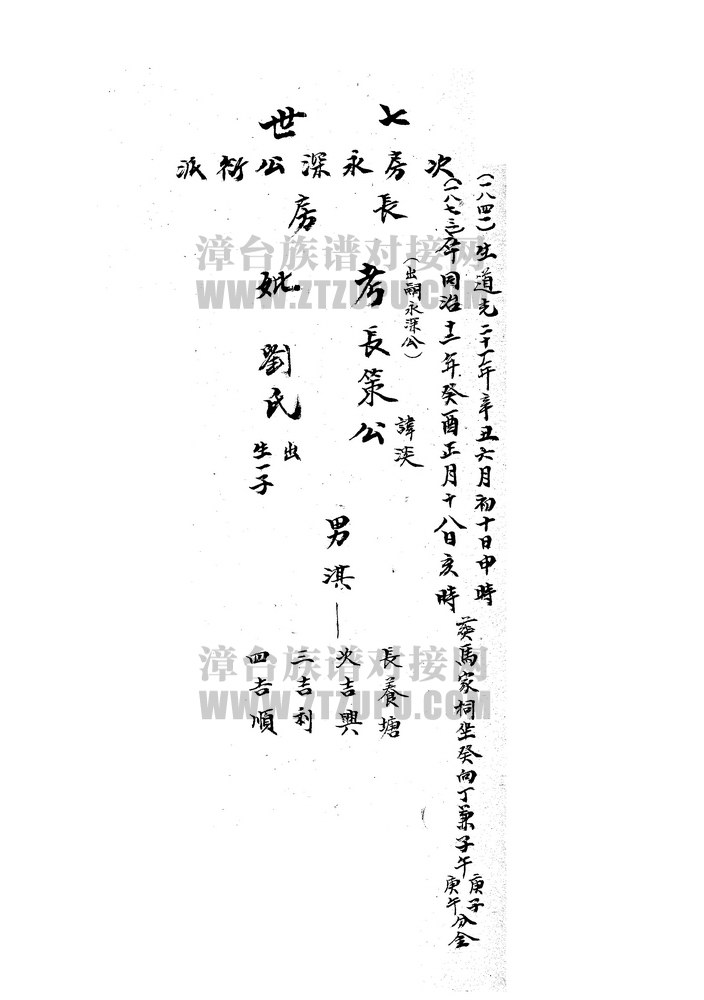 七世
次房永深公衍派
長房
(一八四一)生道光二十一年辛丑六月初十日申時
(一八七三)卒同治十二年癸酉正月十八日亥時
葬馬家祠坐癸向丁兼子午庚子庚午分金
(出嗣永深公)
考長策公
諱淡
妣劉氏
出
生一子
男淇—
長養塘
次吉興
三吉利
四吉順
漳台族谱对接网
WWW.ZTZUPU.COM
漳台族谱对接网
WWW.ZTZUPU.COM